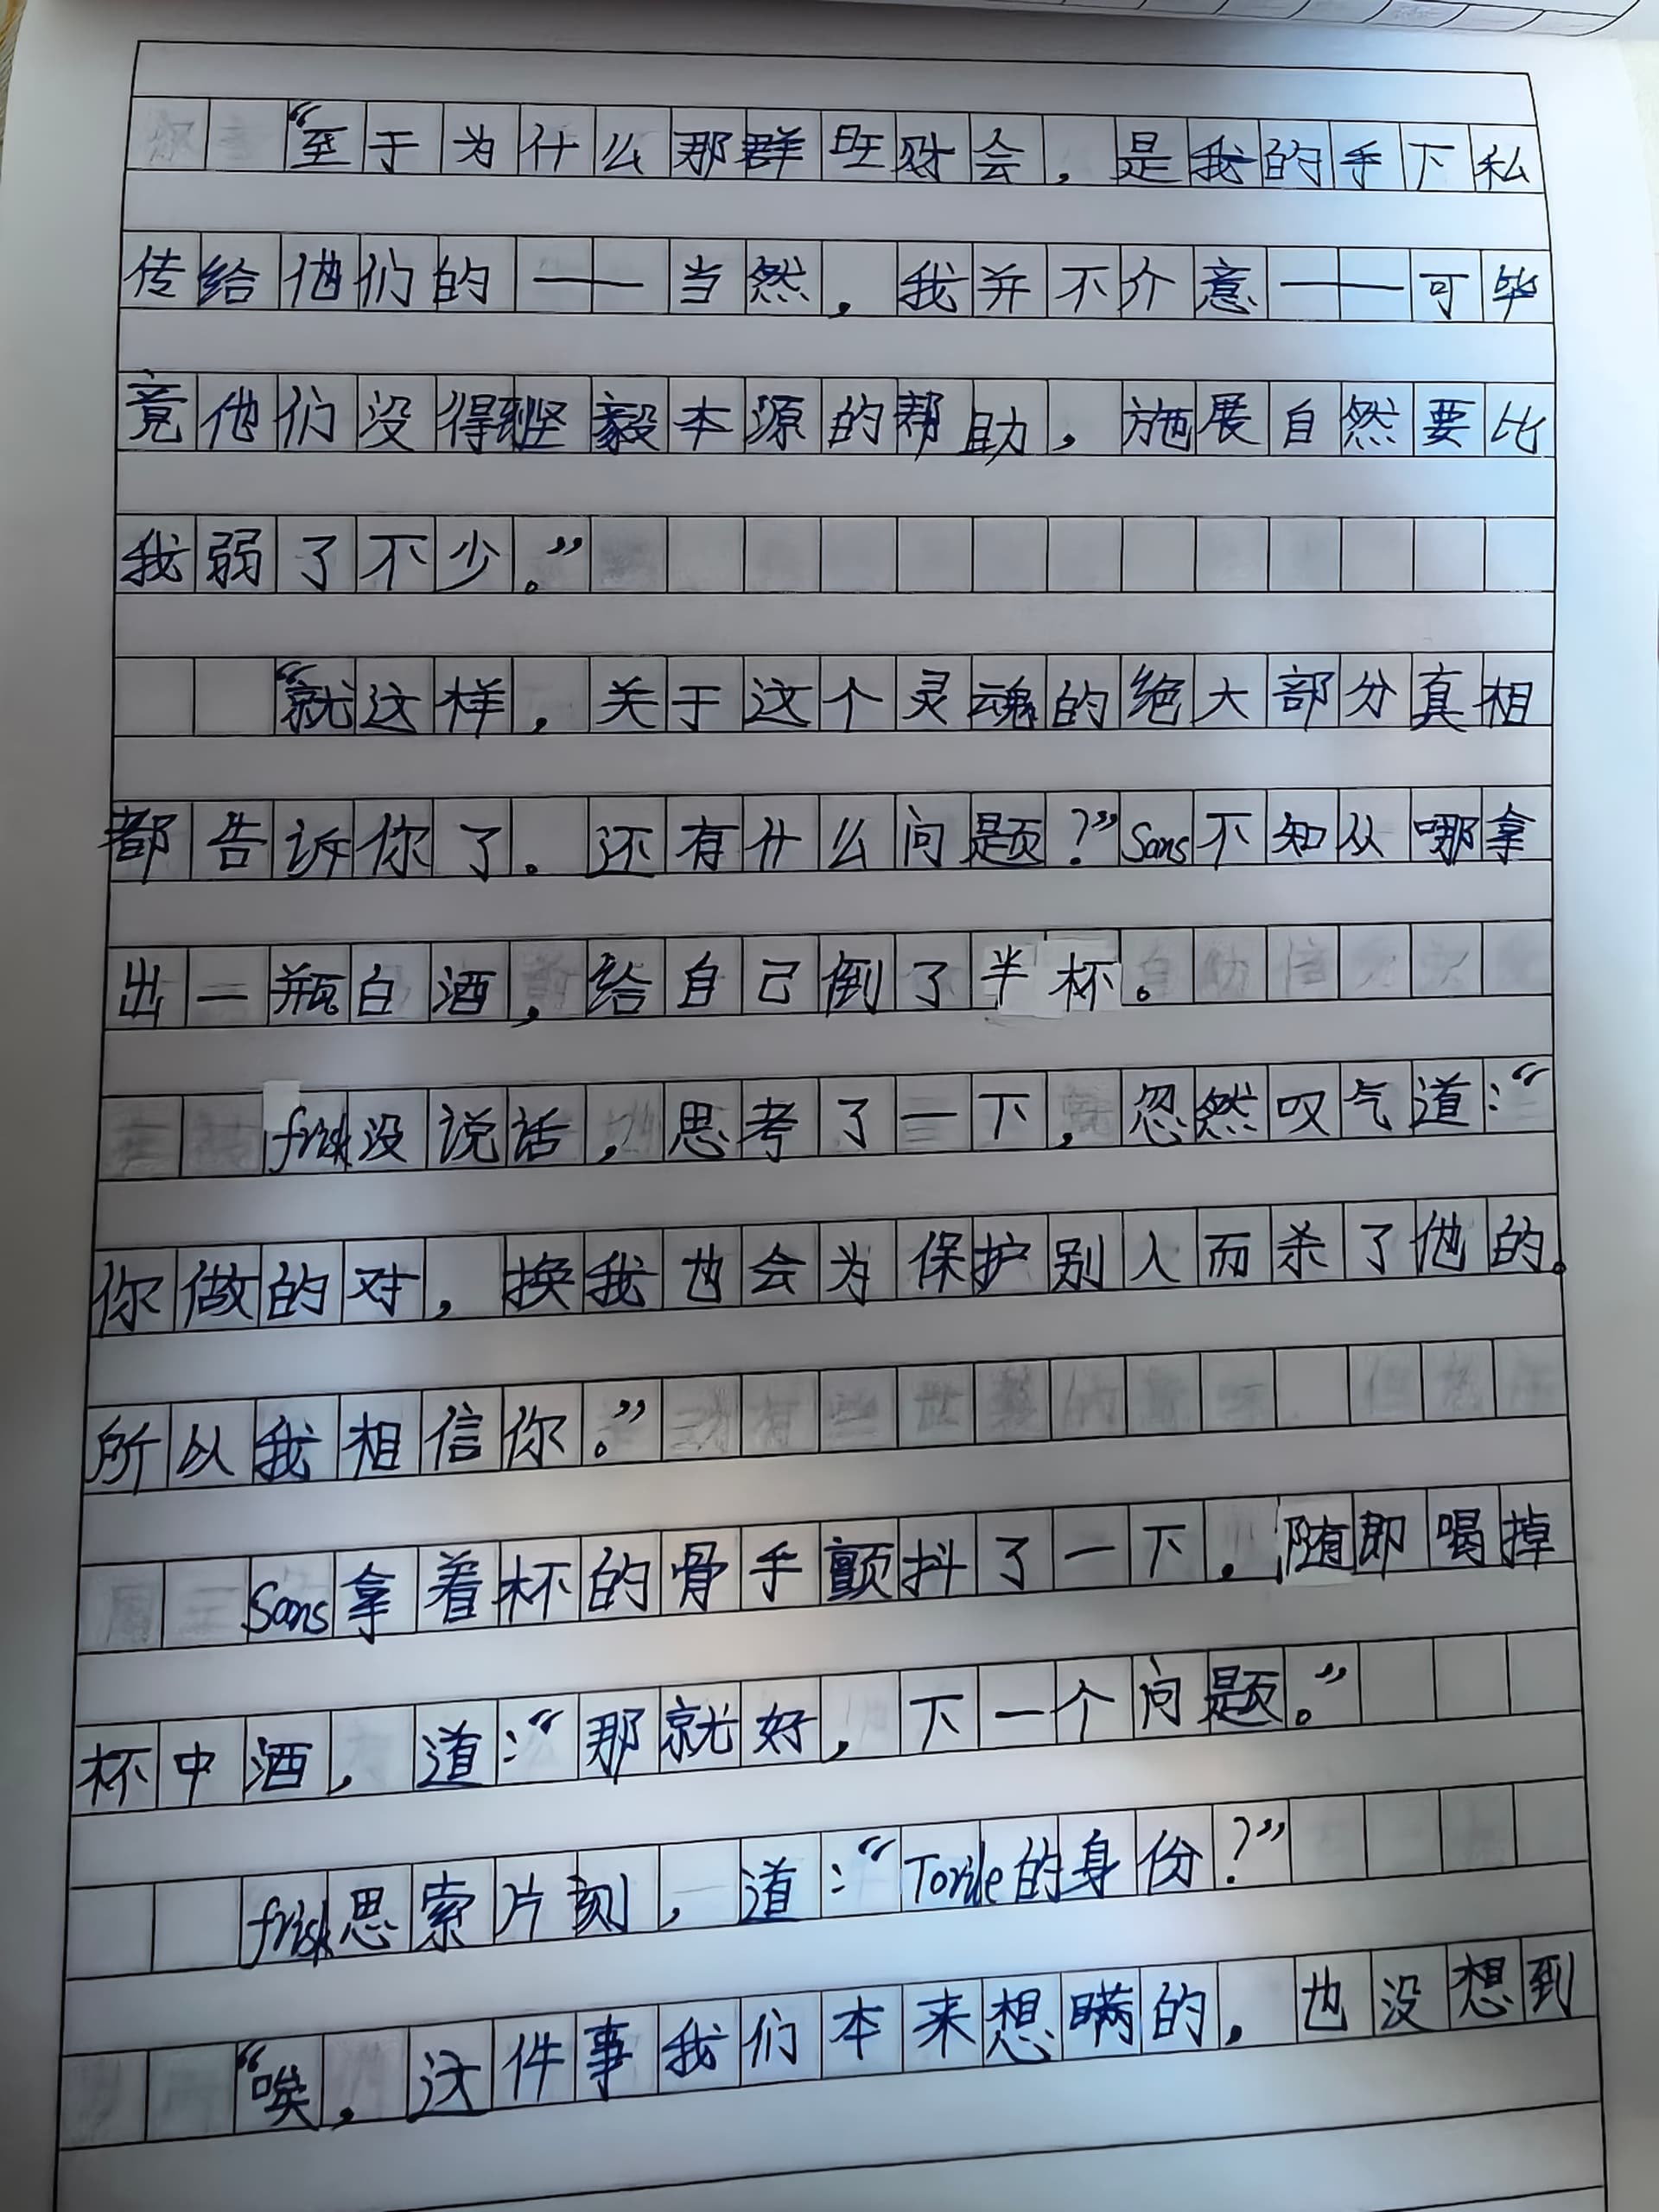 “至于为什么那群旺财会，是我的手下私
传给他们的——当然，我并不介意——可毕
竟他们没得到坚毅本源的帮助，施展自然要比
我弱了不少。”
“就这样，关于这个灵魂的绝大部分真相
都告诉你了。还有什么问题？”Sans不知从哪拿
出一瓶白酒，给自己倒了半杯。
frisk没说话，思考了一下，忽然叹气道：“
你做的对，换我也会为保护别人而杀了他的。
所以我相信你。”
Sans拿着杯的骨手颤抖了一下，随即喝掉
杯中酒，道：“那就好，下一个问题。”
frisk思索片刻，道：“Torile的身份？”
“唉，这件事我们本来想瞒的，也没想到